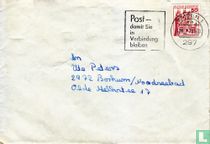 Post –
damit Sie
in
Verbindung
bleiben
297
50
An
Ute Peters
2972 Borkum/Nordseebad
Olde Melkstee 17